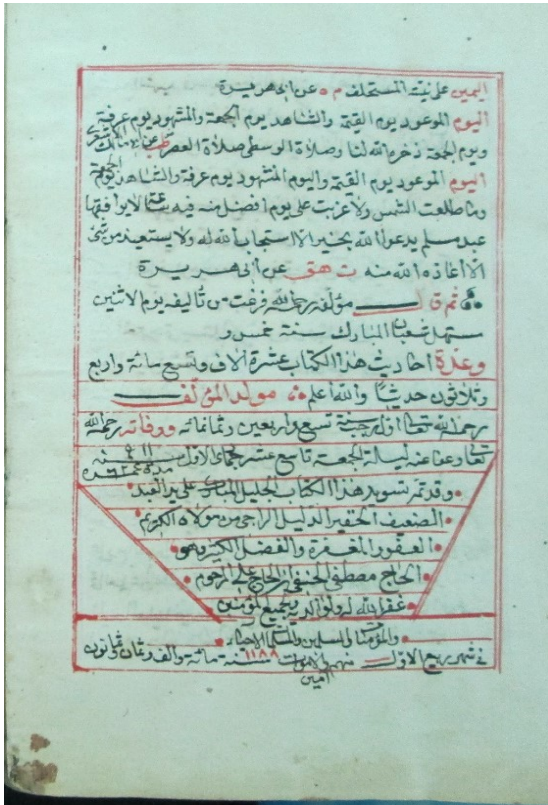 اليمين على نية المستحلف م ه عن ابى هريرة
اليوم الموعود يوم القيمة والشاهد يوم الجمعة والمشهود يوم عرفة
ويوم الجمعة ذخره الله لنا وصلاة الوسطى صلاة العصر طب عن ابى مالك الاشعرى
اليوم الموعود يوم القيمة واليوم المشهود يوم عرفة والشاهد يوم الجمعة
وما طلعت الشمس ولا غربت على يوم افضل منه فيه ساعة لا يوافقها
عبد مسلم يدعو الله بخير الا استجاب الله له ولا يستعيذ من شئ
الا اعاذه الله منه ت هق عن ابى هريرة
ثم قال مؤلفه رحمه الله فرغت من تأليفه يوم الاثنين
مستهل شعبان المبارك سنة خمس و
وعدة احاديث هذا الكتاب عشرة الاف وتسع مائة واربع
وثلاثون حديثا والله اعلم مولد المؤلف
رحمه الله تعالى اول رجب سنة تسع واربعين وثمانمائة ووفاته رحمه الله
تعالى وعنا عنه ليلة الجمعة تاسع عشر جمادى الاول سنة ٩١١
مدة عمره ٦٢
وقد تم تسويد هذا الكتاب الجليل المبارك على يد العبد
الضعيف الحقير الذليل الراجى من مولاه الكريم
العفو والمغفرة والفضل الكبير وهو
الحاج مصطفى الحنفى بن الحاج على المرحوم
غفر الله له ولوالديه ولجميع المؤمنين
والمؤمنات والمسلمين والمسلمات الاحياء
فى شهر ربيع الاول منهم والاموات ١١٨٨ سنة مائة والف وثمان وثمانون
امين